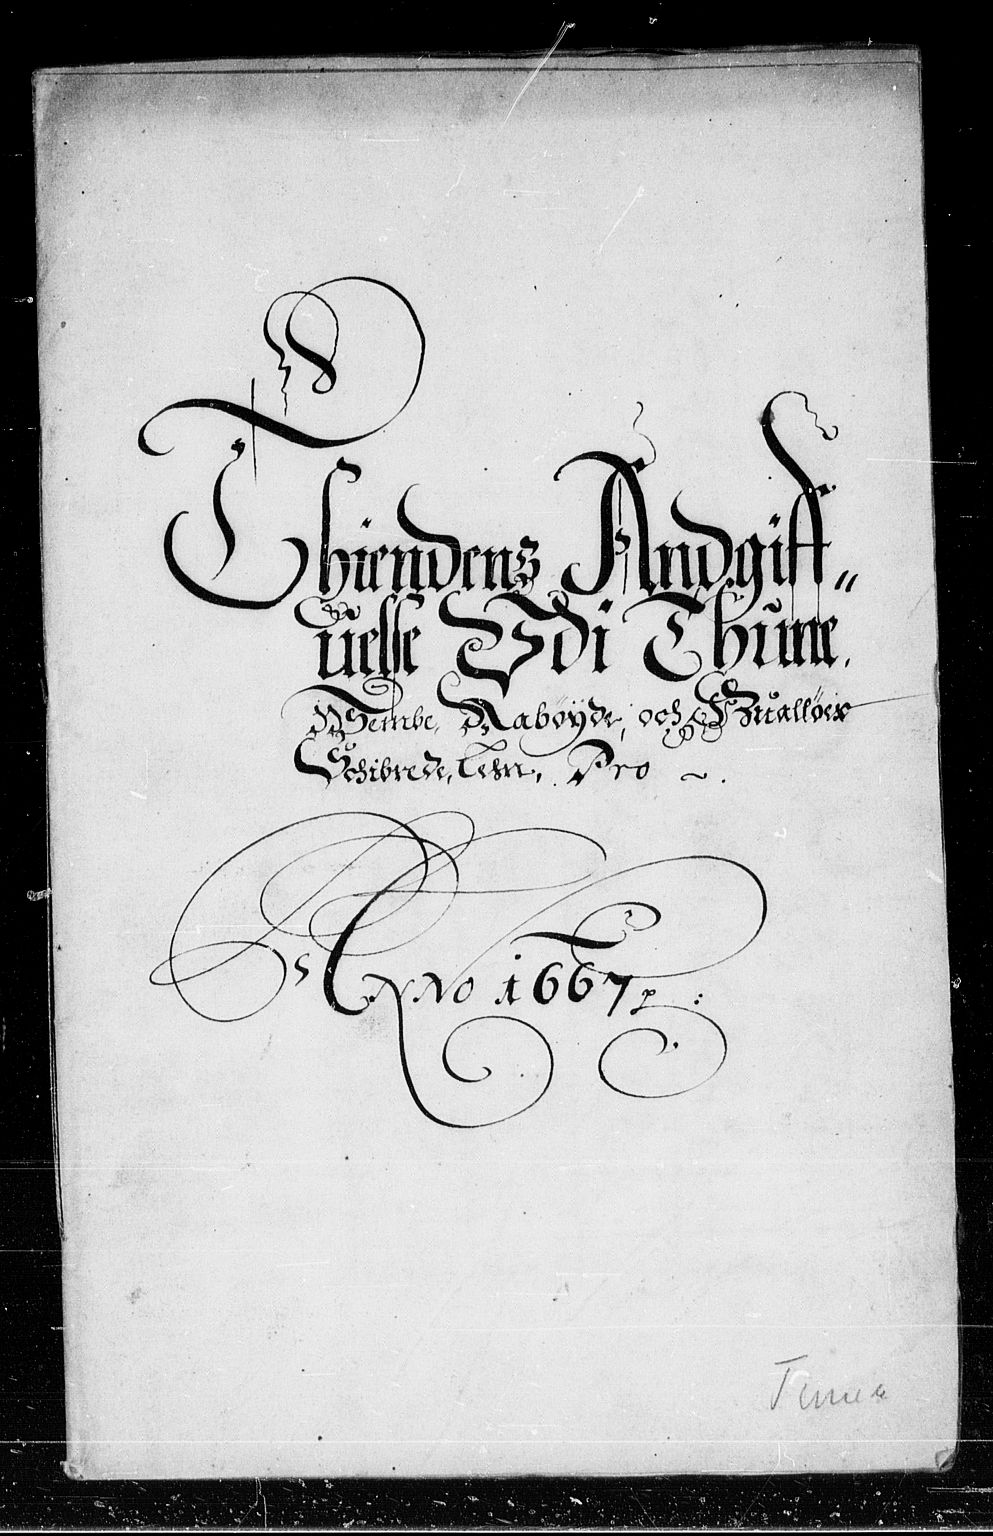 Thiendens Andgiff„
uelsse Vdi Thune.
Wembe, Aabøyde, och Huallöer
Schibrede, Lehn, Pro ~.
Anno 1667 p:
Tune